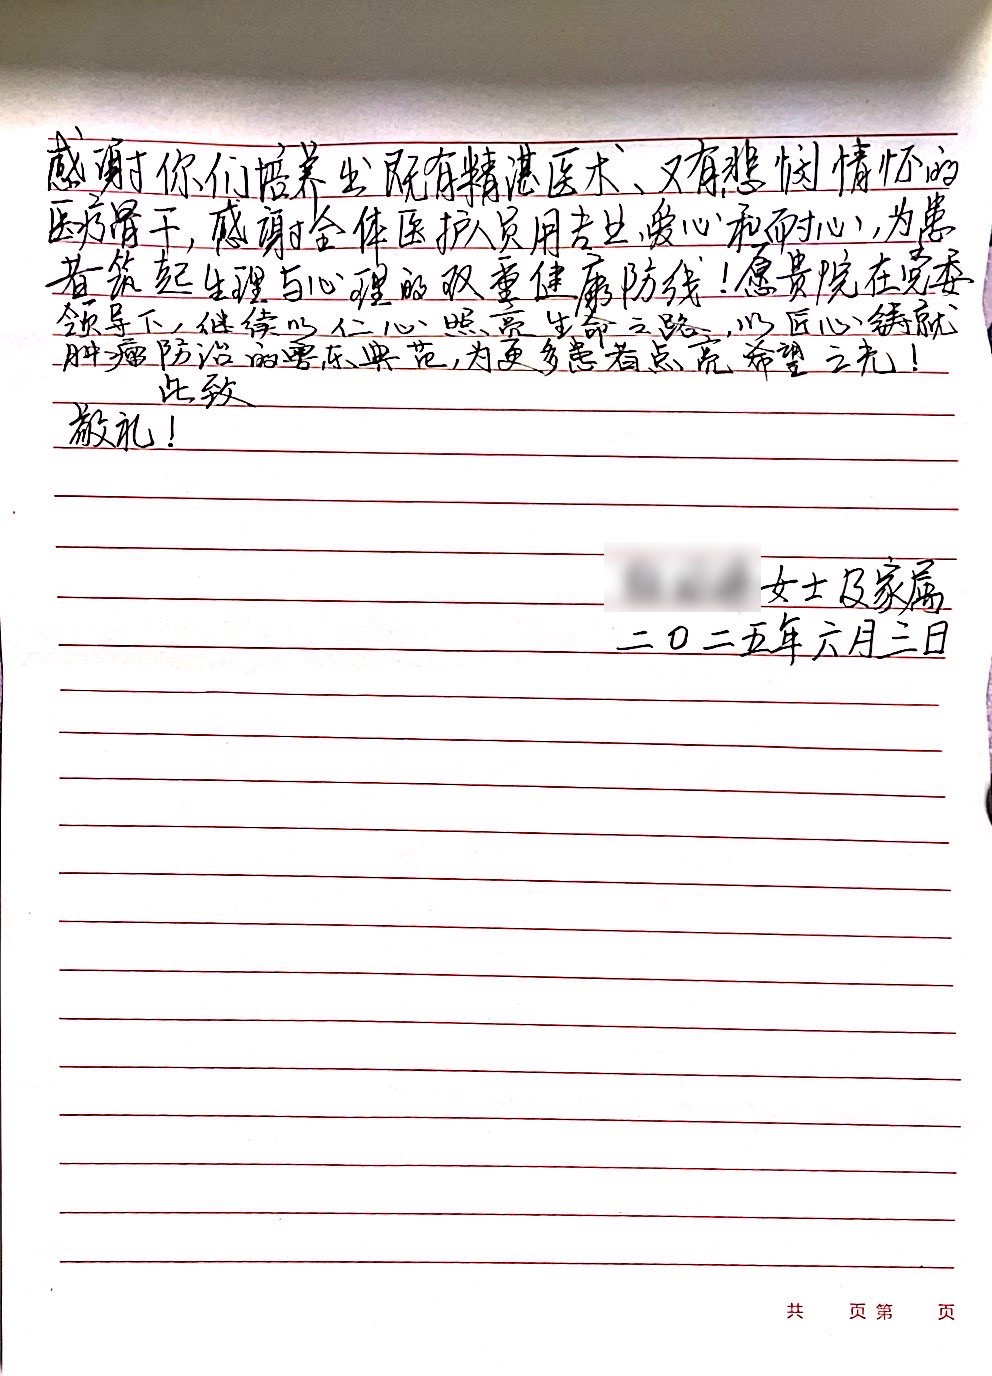 感谢你们培养出既有精湛医术、又有悲悯情怀的
医疗骨干，感谢全体医护人员用专业、爱心和耐心，为患
者筑起生理与心理的双重健康防线！愿贵院在党委
领导下，继续以仁心照亮生命之路，以匠心铸就
肿瘤防治的粤东典范，为更多患者点亮希望之光！
此致
敬礼！
女士及家属
二〇二五年六月三日
共 页 第 页